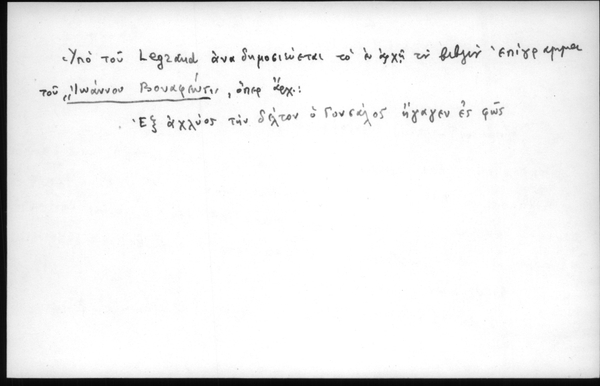 Ὑπὸ τοῦ Legrand ἀναδημοσιεύεται τὸ ἐν ἀρχῇ τοῦ βιβλίου ἐπίγραμμα
τοῦ „Ἰωάννου Βοναφεύς", ὅπερ ἄρχ.:
Ἐξ ἀχλύος τὴν δέλτον ὁ Γονσάλος ἤγαγεν ἐς φῶς